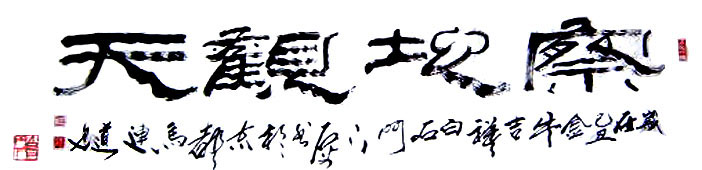 察地觀天
歲在己丑金牛吉祥白石門下書於京都馬連道